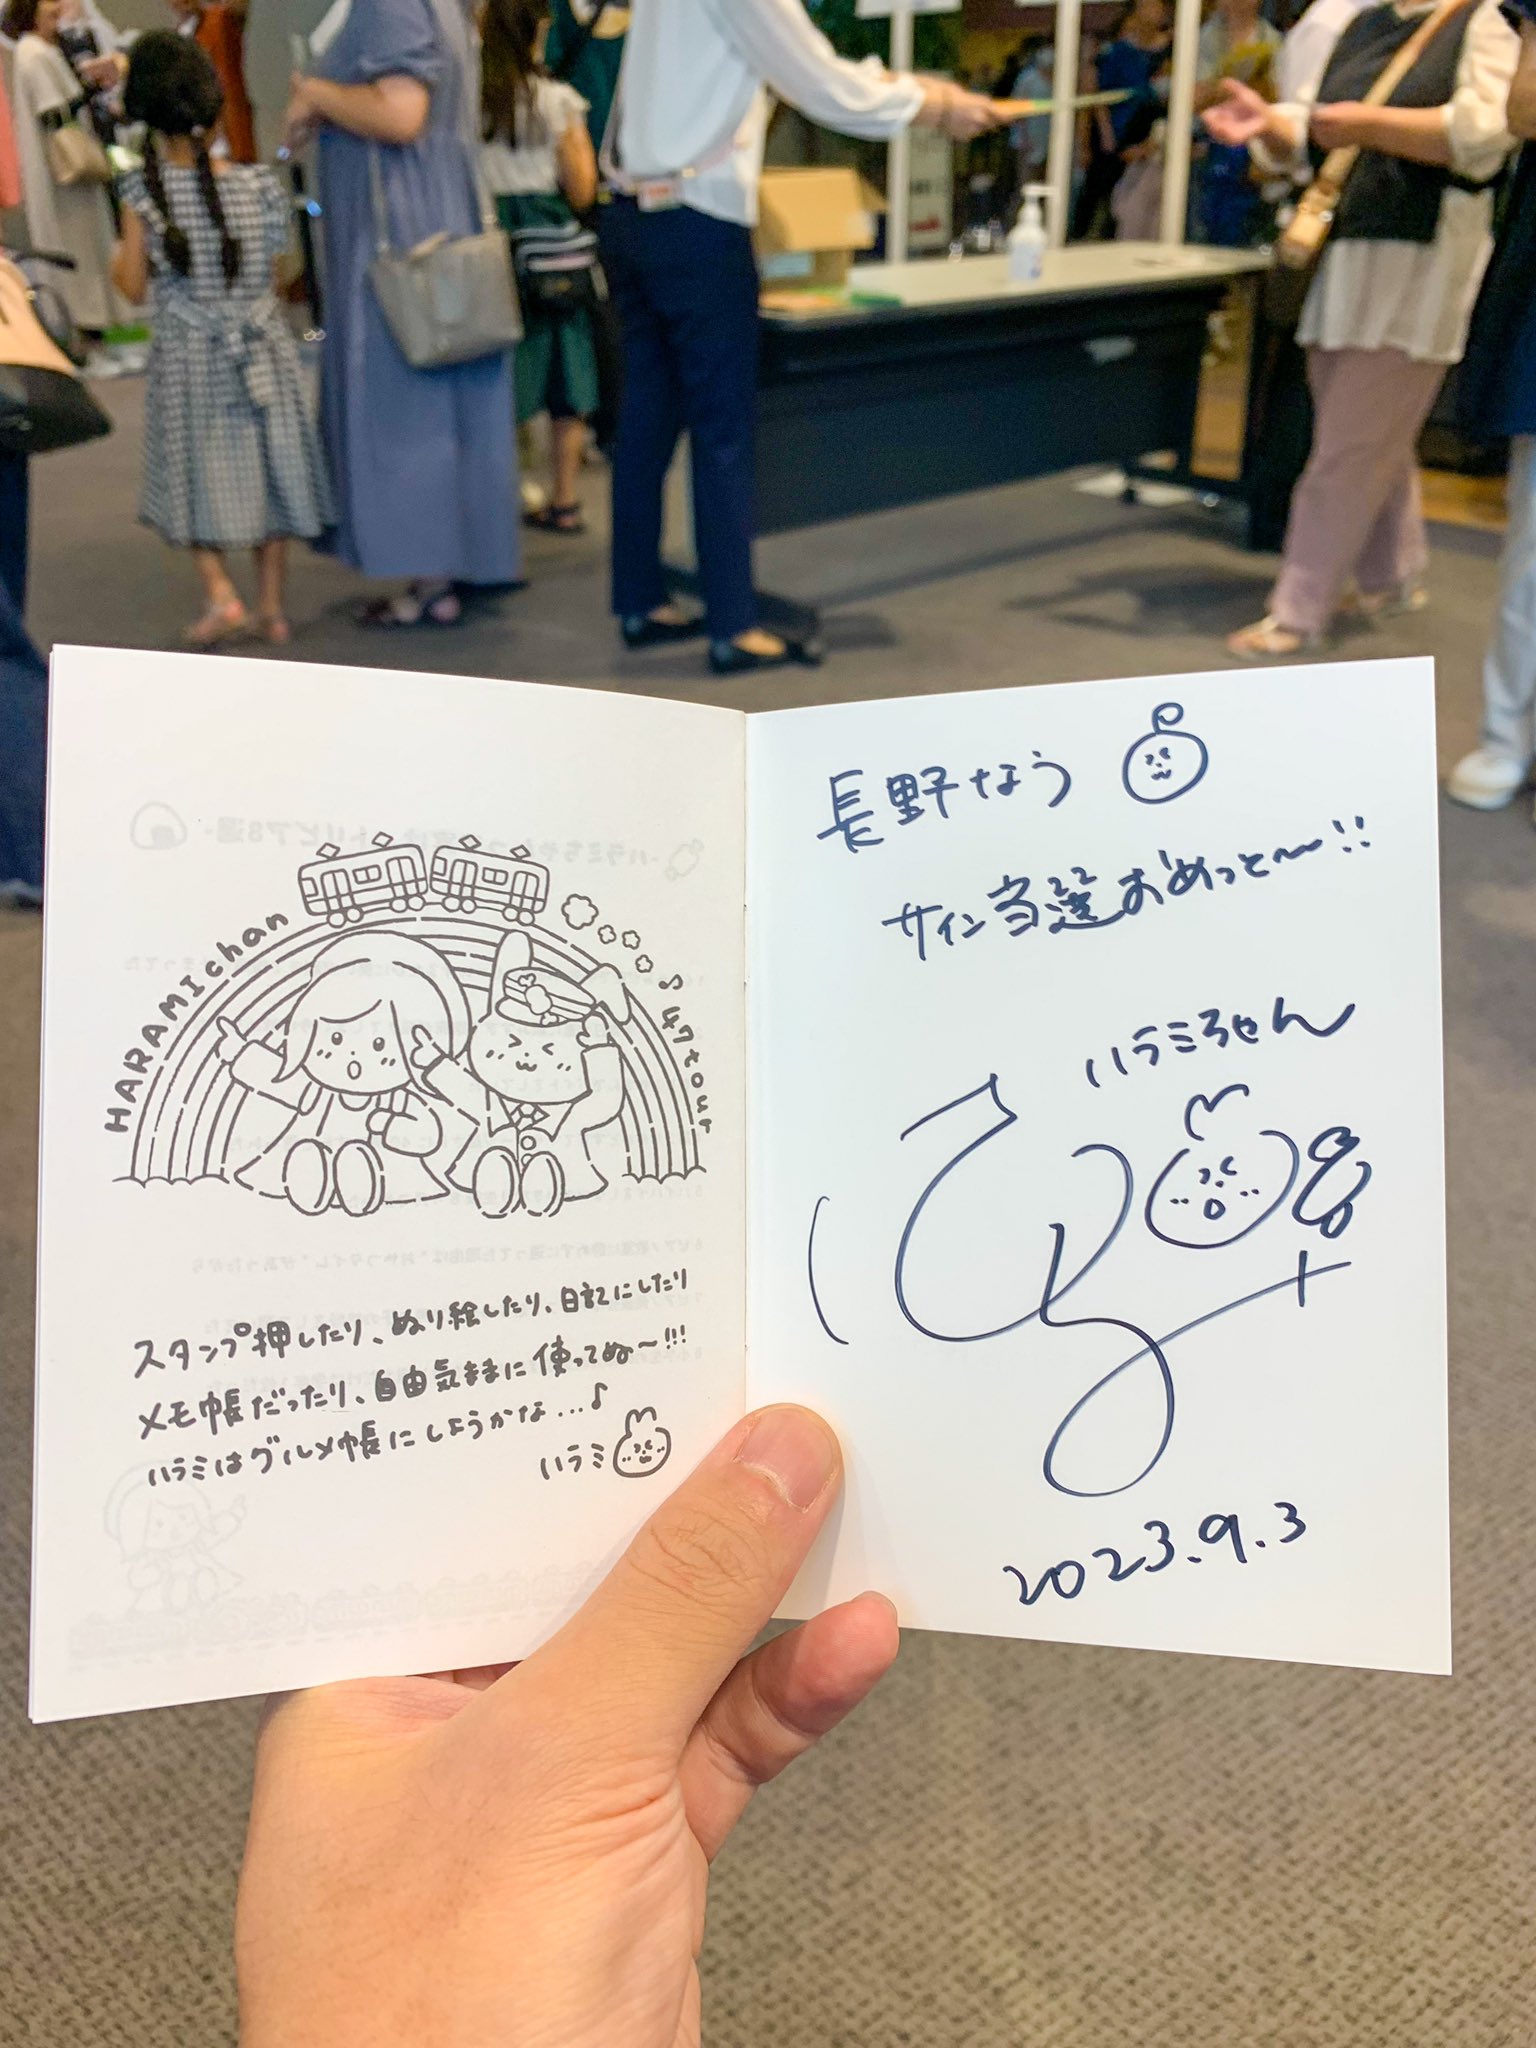 HARAMIchan
♪47tour
スタンプ押したり、ぬり絵したり、日記にしたり
メモ帳だったり、自由気ままに使ってぬ〜!!!
ハラミはグルメ帳にしようかな...♪
ハラミ
長野なう
サイン当選おめっと〜!!
ハラミちゃん
2023.9.3